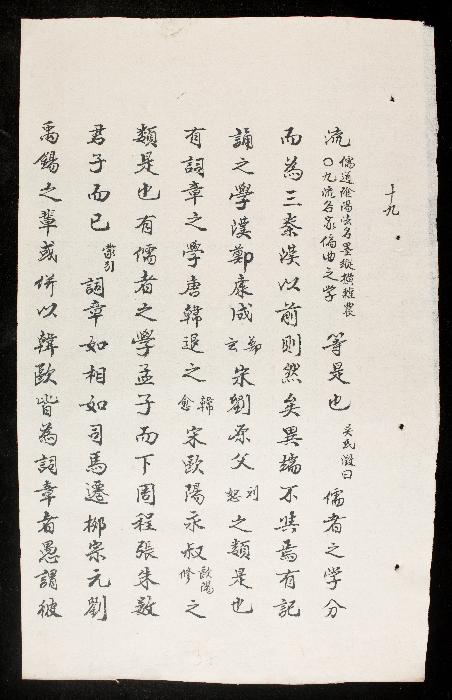 十九
流儒道陰陽法名墨縱橫雜農〇九流各家偏曲之学等是也吳氏澂曰儒者之学分
而為三秦漢以前則然矣異端不與焉有記
誦之學漢鄭康成鄭玄宋劉原父刘恕之類是也
有詞章之學唐韓退之韓愈宋歐陽永叔歐陽修之
類是也有儒者之學孟子而下周程張朱数
君子而已蒙引詞章如相如司馬遷柳宗元劉
禹錫之輩或併以韓歐皆為詞章者愚謂彼